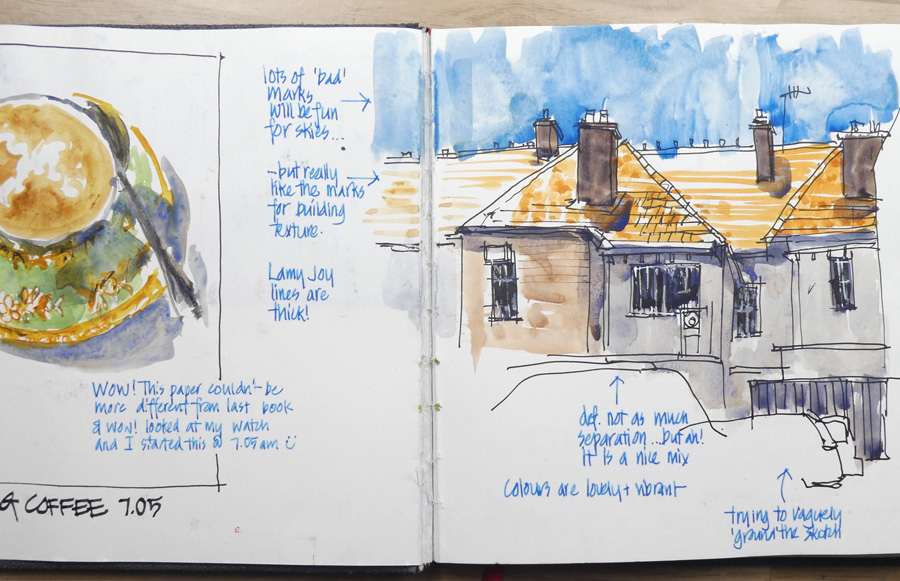 lots of 'bad'
marks
will be fun
for skies...
-but really
like the marks
for building
texture.
Lamy Joy
lines are
thick!
WOW! This paper couldn't be
more different from last book
& wow! looked at my watch
and I started this @ 7.05 am
& COFFEE 7.05
def. not as much
separation...but an!
it is a nice mix
Colours are lovely + vibrant
trying to vaguely
'ground' the sketch